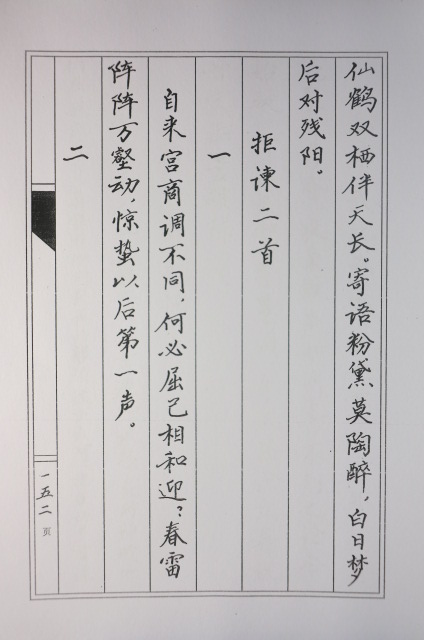 仙鹤双栖伴天长。寄语粉黛莫陶醉，白日梦
后对残阳。
拒谏二首
一
自来宫商调不同，何必屈己相和迎？春雷
阵阵万壑动，惊蛰以后第一声。
二
一五二页